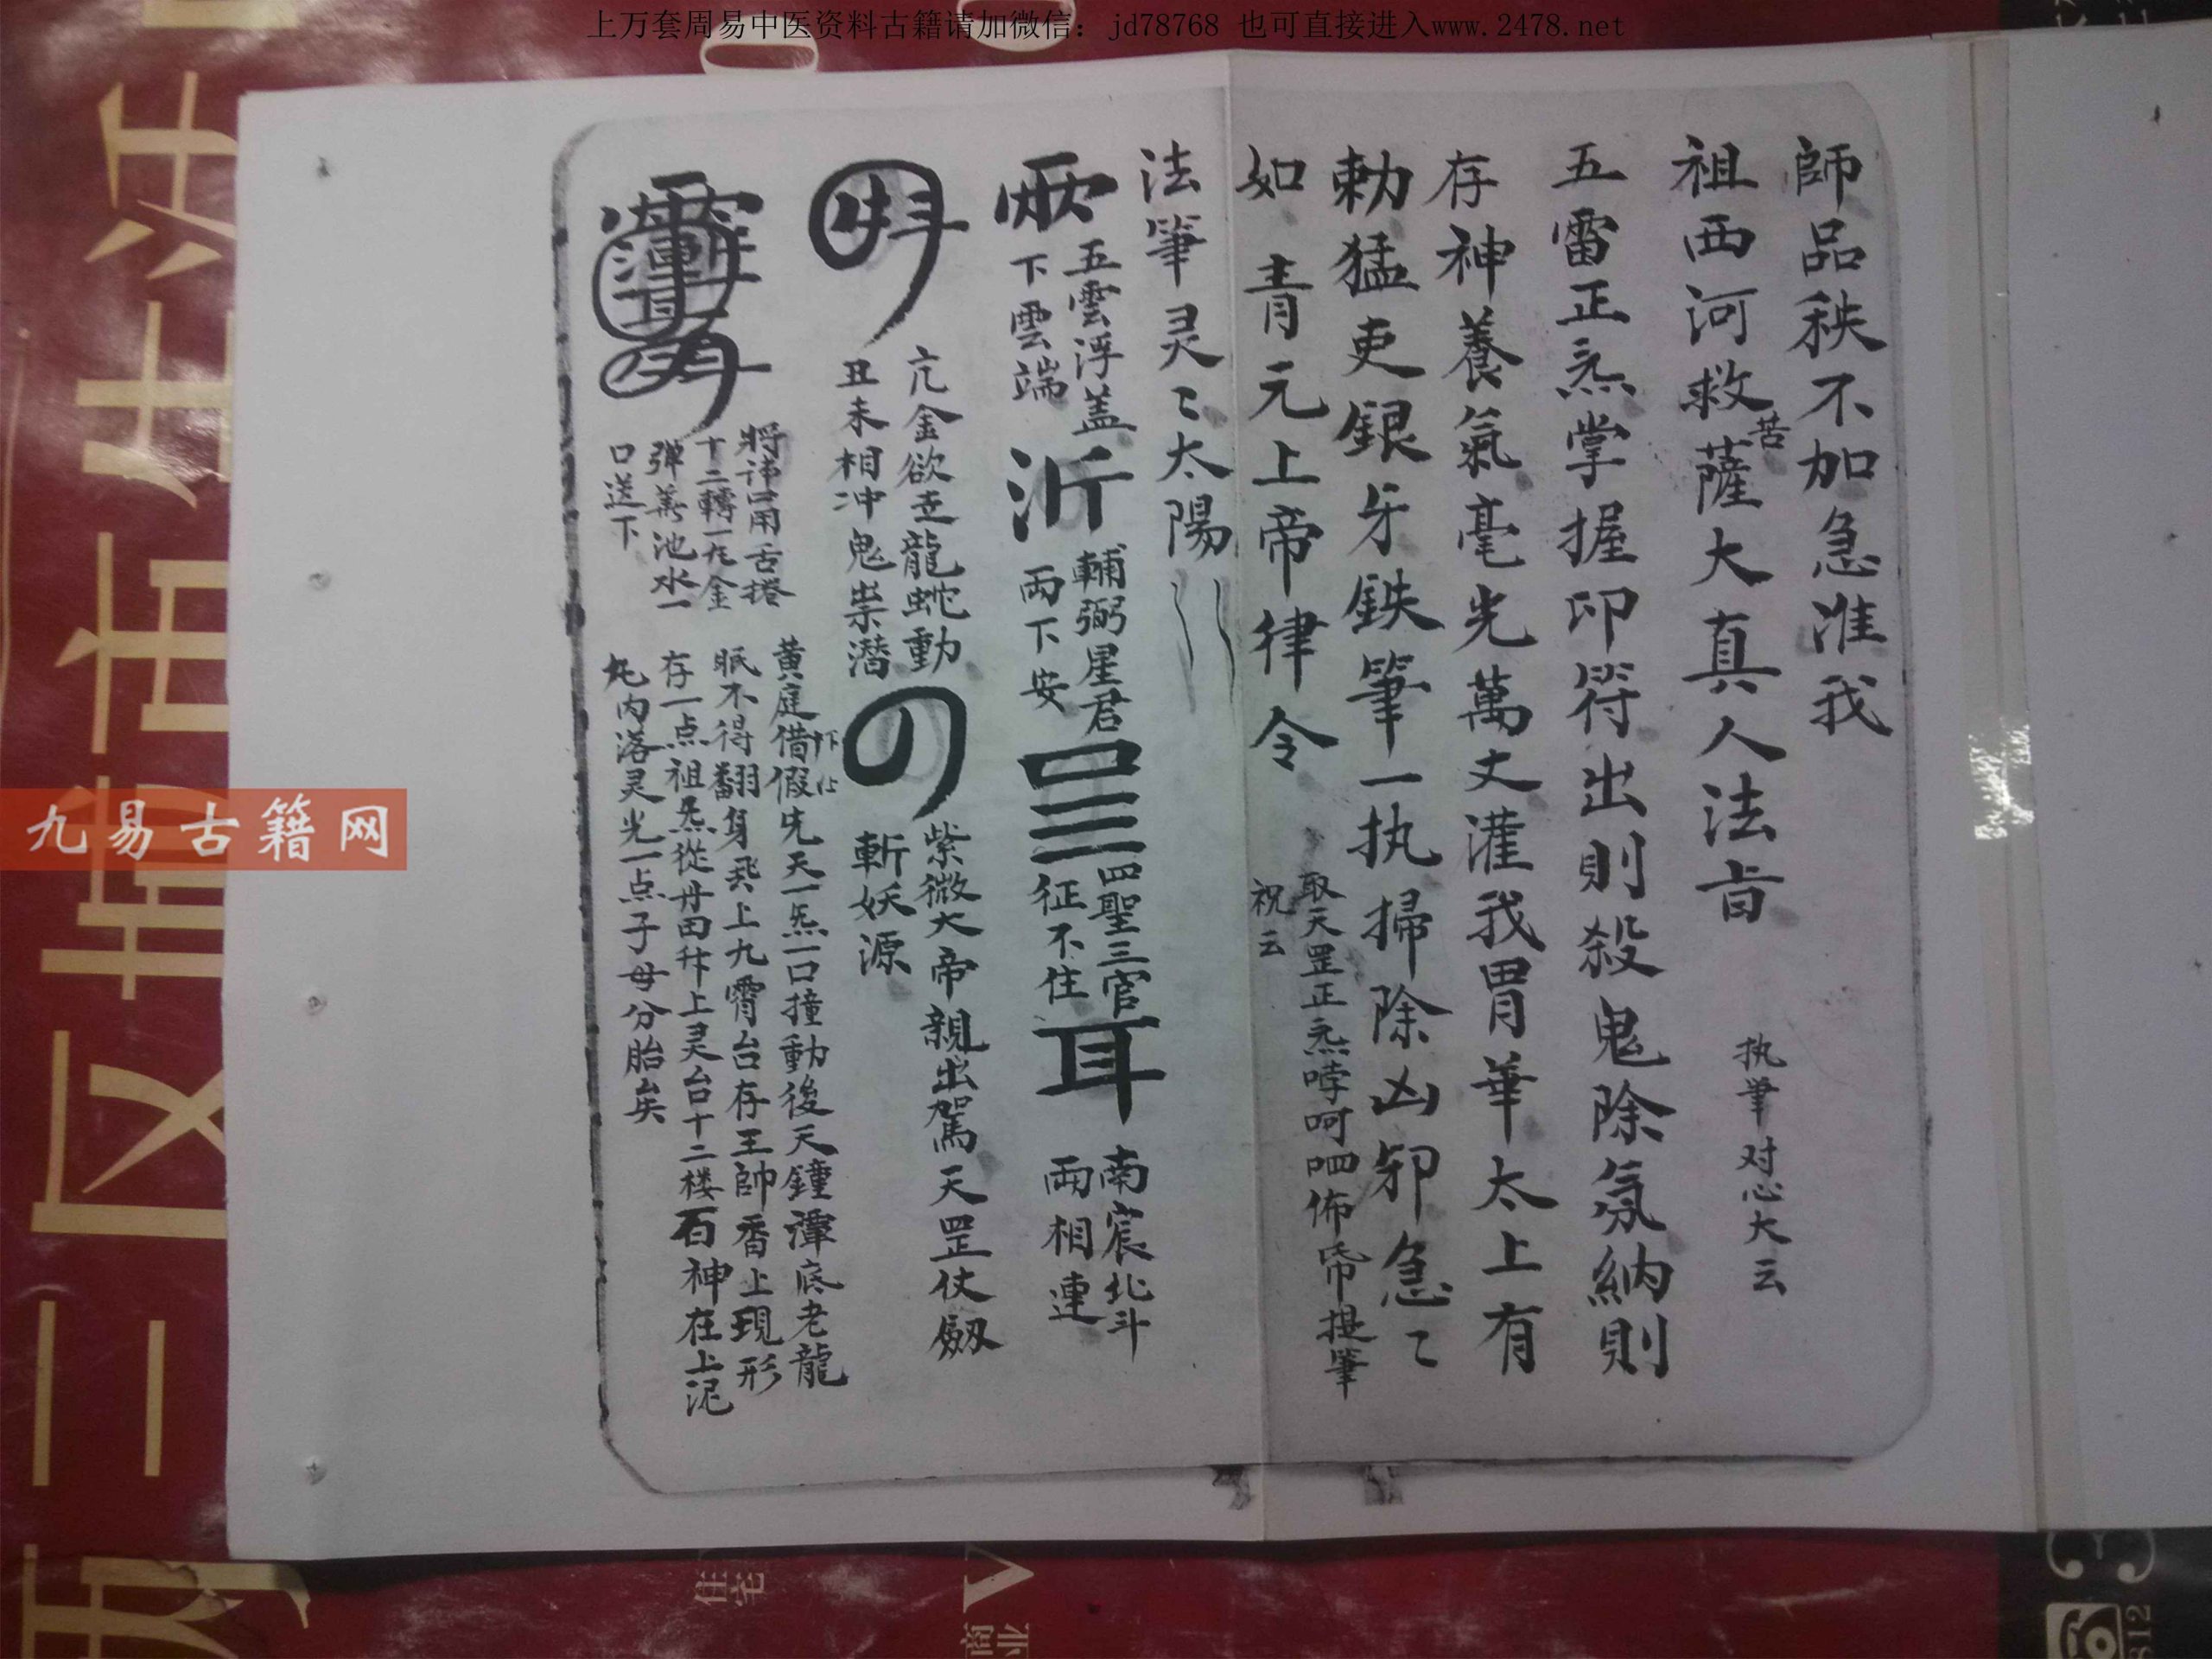 上万套周易中医资料古籍请加微信：jd78768 也可直接进入www.2478.net
師品秩不加急准我
祖西河救苦薩大真人法旨 执筆对心大云
五雷正炁掌握印符出則殺鬼除氛納則
存神養氣毫光萬丈灌我胃華太上有
勅猛吏銀牙鉄筆一执掃除凶邪急〻
如 青元上帝律令 取天罡正炁 呵 佈 提筆
祝云
法筆灵〻太陽
五雲浮盖
下雲端
輔弼星君
兩下安
四聖三官
征不住
耳
南宸北斗
兩相連
亢金欲走龍蛇動
丑未相冲鬼祟潛
紫微大帝親出駕 天罡仗劔
斬妖源
將諱 用舌捲
十二轉一九金
弹 池水一
口送下
黄庭借假先天一炁一口撞動後天鐘潭底老龍
眠不得翻身飛上九霄台存王帥香上現形
存一点祖炁從丹田升上灵台十二楼石神在上泥
丸内落灵光一点子母分胎矣
九易古籍网
812